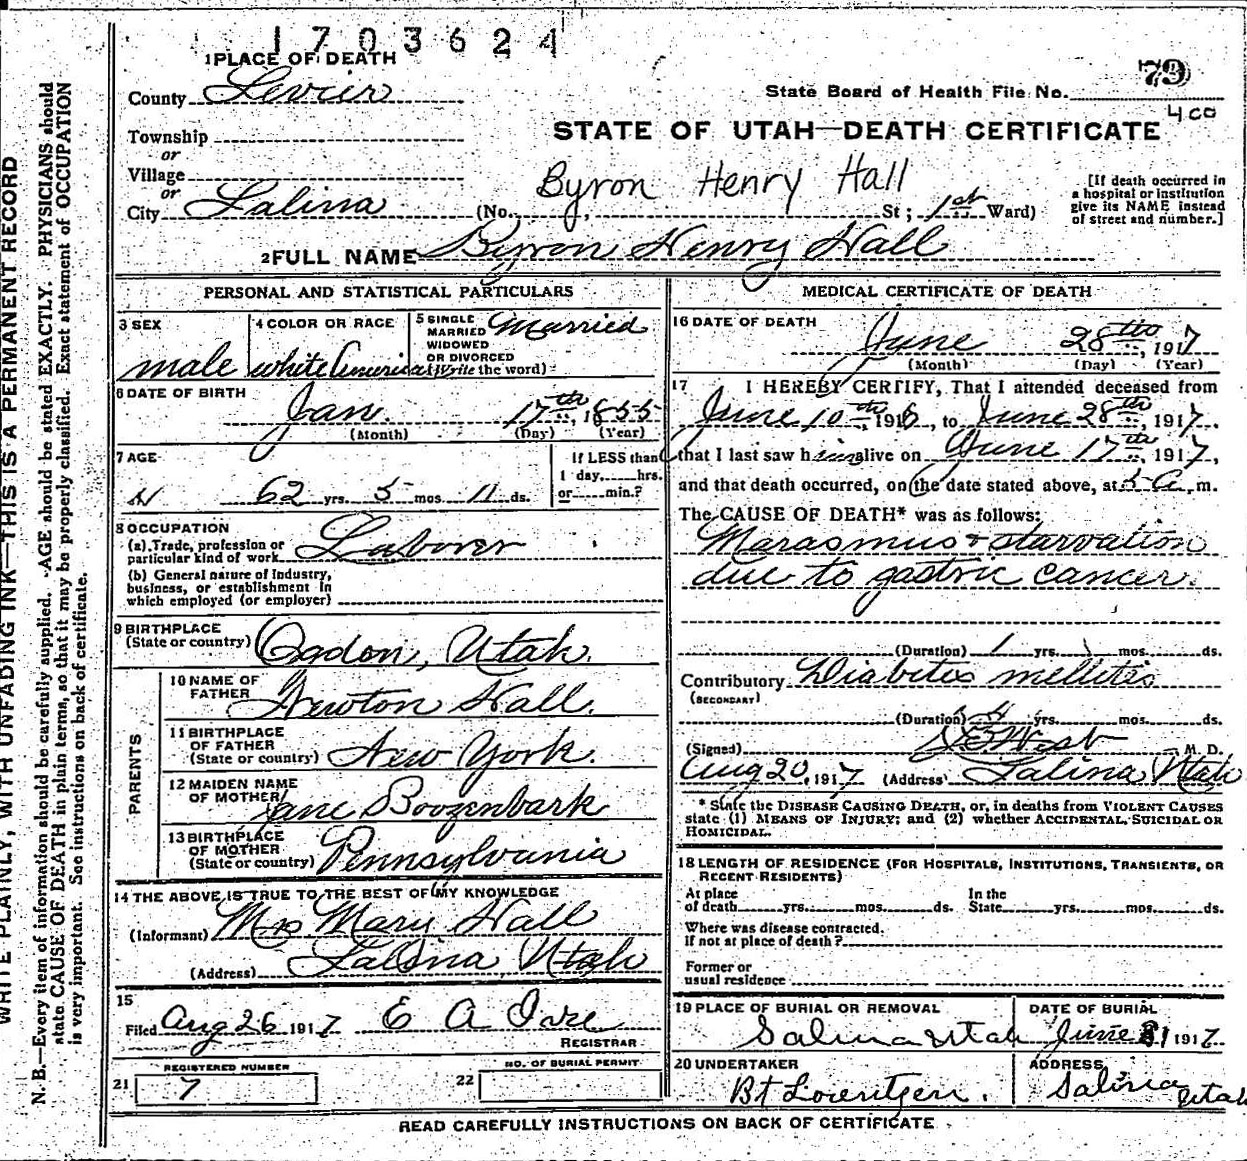 1703624
1 PLACE OF DEATH
79
County Sevier
State Board of Health File No.
400
Township
STATE OF UTAH—DEATH CERTIFICATE
or
Village
Byron Henry Hall
or
City Salina (No. , St; 1st Ward)
[If death occurred in
a hospital or institution
give its NAME instead
of street and number.]
2 FULL NAME Byron Henry Hall
PERSONAL AND STATISTICAL PARTICULARS
3 SEX
male
4 COLOR OR RACE
white American
5 SINGLE
MARRIED
WIDOWED
OR DIVORCED
(Write the word)
Married
6 DATE OF BIRTH
Jan. 17th, 1855
(Month) (Day) (Year)
7 AGE
62 yrs. 5 mos. 11 ds.
If LESS than
1 day, hrs.
or min.?
8 OCCUPATION
(a) Trade, profession or
particular kind of work Laborer
(b) General nature of industry,
business, or establishment in
which employed (or employer)
9 BIRTHPLACE
(State or country) Ogdon, Utah.
PARENTS
10 NAME OF
FATHER Newton Hall.
11 BIRTHPLACE
OF FATHER
(State or country) New York.
12 MAIDEN NAME
OF MOTHER Jane Boozenbark
13 BIRTHPLACE
OF MOTHER
(State or country) Pennsylvania
14 THE ABOVE IS TRUE TO THE BEST OF MY KNOWLEDGE
(Informant) Mrs Mary Hall
(Address) Salina Utah
15
Filed Aug 26 1917 E A
REGISTRAR
21 REGISTERED NUMBER
7
22 NO. OF BURIAL PERMIT
MEDICAL CERTIFICATE OF DEATH
16 DATE OF DEATH
June 28th, 1917
(Month) (Day) (Year)
17 I HEREBY CERTIFY, That I attended deceased from
June 10th, 1916, to June 28th, 1917.
that I last saw him alive on June 17th, 1917,
and that death occurred, on the date stated above, at 5 a. m.
The CAUSE OF DEATH* was as follows:
Marasmus & starvation
due to gastric cancer.
(Duration) 1 yrs. mos. ds.
Contributory Diabetes mellitis
(SECONDARY)
(Duration) yrs. mos. ds.
(Signed) West M. D.
Aug 20, 1917 (Address) Salina Utah
* State the DISEASE CAUSING DEATH, or, in deaths from VIOLENT CAUSES
state (1) MEANS OF INJURY; and (2) whether ACCIDENTAL, SUICIDAL OR
HOMICIDAL.
18 LENGTH OF RESIDENCE (FOR HOSPITALS, INSTITUTIONS, TRANSIENTS, OR
RECENT RESIDENTS)
At place
of death yrs. mos. ds.
In the
State yrs. mos. ds.
Where was disease contracted,
if not at place of death?
Former or
usual residence
19 PLACE OF BURIAL OR REMOVAL
Salina Utah
DATE OF BURIAL
June 1917
20 UNDERTAKER
ADDRESS
Salina Utah
READ CAREFULLY INSTRUCTIONS ON BACK OF CERTIFICATE
WRITE PLAINLY, WITH UNFADING INK—THIS IS A PERMANENT RECORD
N. B.—Every item of information should be carefully supplied. AGE should be stated EXACTLY. PHYSICIANS should
state CAUSE OF DEATH in plain terms, so that it may be properly classified. Exact statement of OCCUPATION
is very important. See instructions on back of certificate.